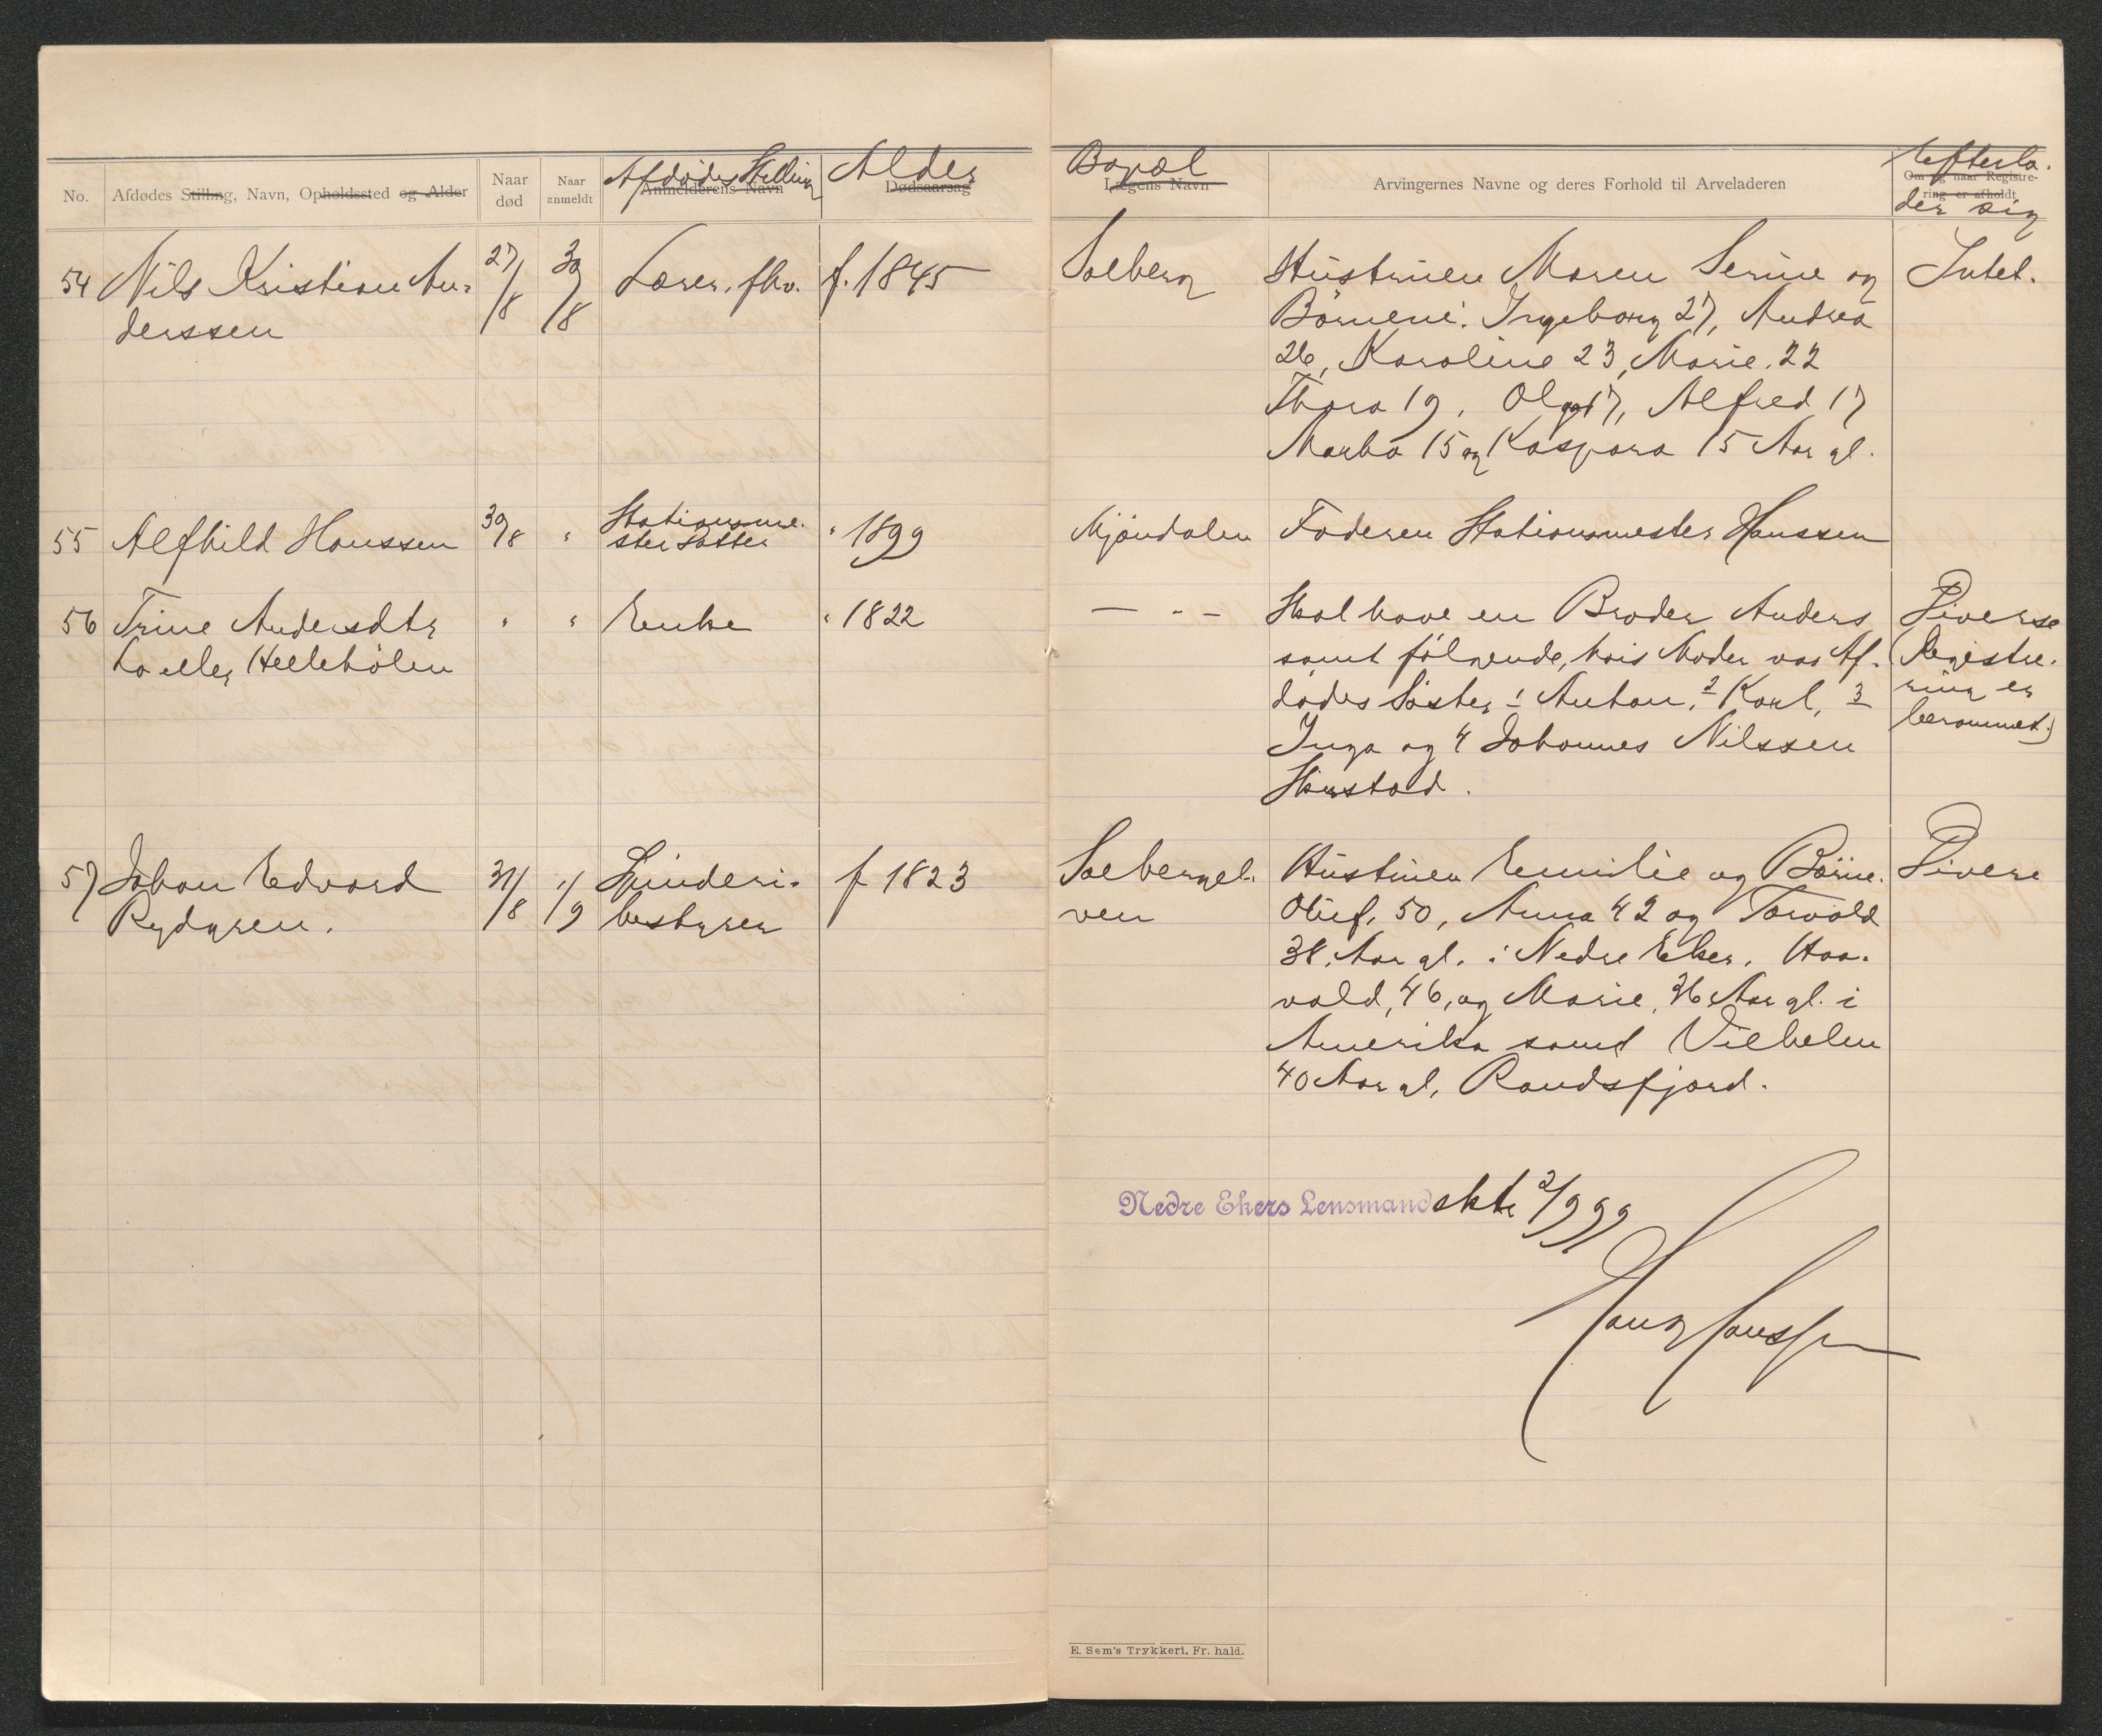 No.
Afdødes Stilling, Navn, Opholdssted og Alder
Naar død
Naar anmeldt
Anmelderens Navn
Afdødes Stilling
Dødsaarsag
Alder
Lægens Navn
Bopæl
Arvingernes Navne og deres Forhold til Arveladeren
Om og naar Registre-
ring er afholdt
Efterla-
der sig
54 Nils Kristian An- 27/8 30/8 Lærer, fhv. f. 1845 Solberg Hustruen Maren Serine og Intet.
derssen
Börnene: Ingeborg 27, Andrea
26, Karoline 23, Marie 22
Thora 19, Olga 17, Alfred 17
Martha 15 og Kaspara 15 Aar gl.
55 Alfhild Hanssen 30/8 " Stationsme- " 1899 Mjöndalen Faderen Stationsmester Hanssen
ster datter
56 Trine Andersdtr " " Enke " 1822 — " — Skal have en Broder Anders Diverse
Lo eller Hellehölen samt fölgende, hvis Moder var Af- (Registre-
dödes Söster: 1 Anton, 2 Karl, 3 ring er
Inga og 4 Johannes Nilssen berammet.)
57 Johan Edvard 31/8 1/9 Spinderi- f 1823 Solbergel- Hustruen Emilie og Börne- Divere
Rydgren. bestyrer ven Oluf, 50, Anna 42 og Torvald
38 Aar gl. i Nedre Eker, Haa-
vald, 46, og Marie, 36 Aar gl. i
Amerika samt Vilhelm
40 Aar gl, Randsfjord.
Nedre Ekers Lensmandskt 2/9 99
Hans Hanssen
E. Sem's Trykkeri, Fr. hald.